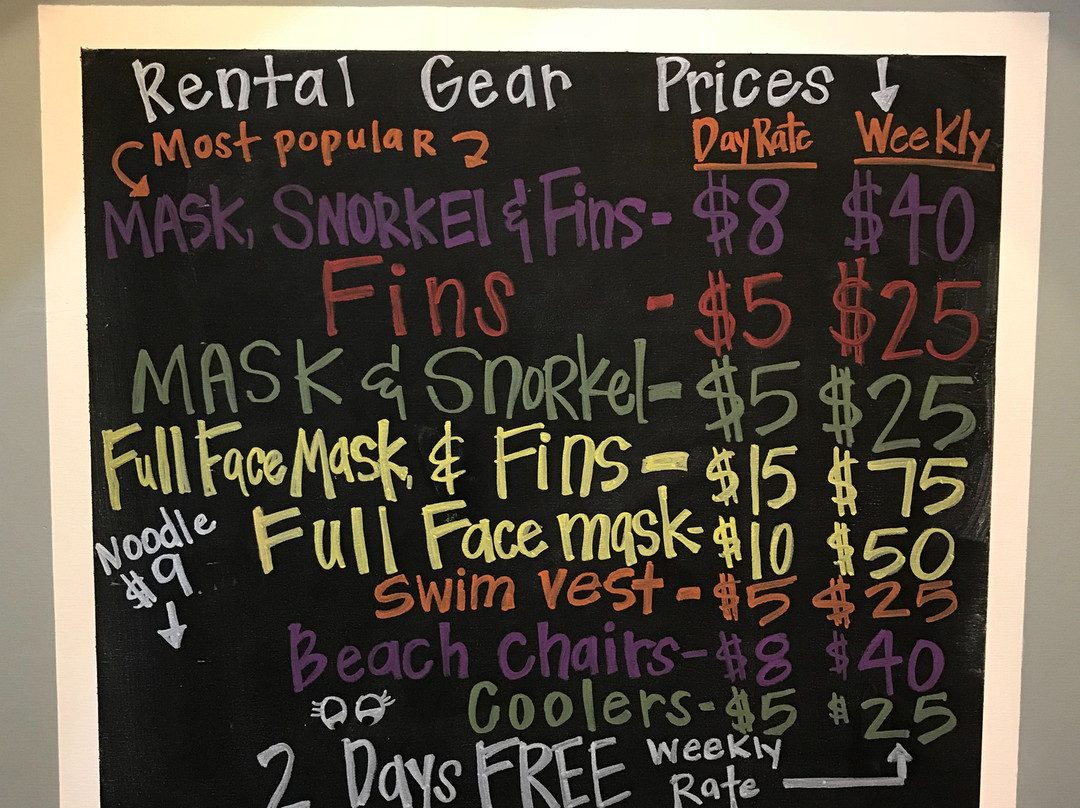 Rental Gear Prices
Most popular Day Rate Weekly
MASK, SNORKEl & Fins - $8 $40
Fins - $5 $25
MASK & Snorkel - $5 $25
Full Face Mask, & Fins - $15 $75
Full Face mask - $10 $50
Noodle
$9
Swim vest - $5 $25
Beach Chairs - $8 $40
Coolers - $5 $25
2 Days FREE Weekly
Rate